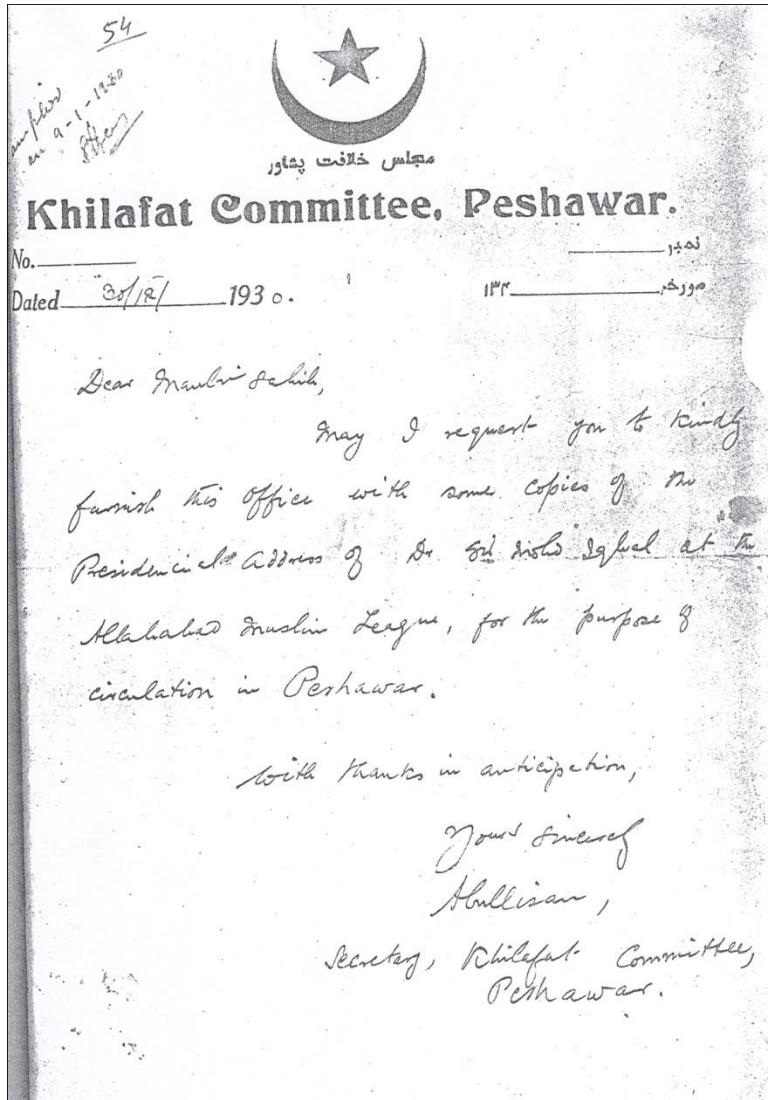 54
on 9-1-1930
مجلس خلافت پشاور
Khilafat Committee, Peshawar.
No.
نمبر
Dated 30/12/ 1930.
مورخہ ۱۳۴
Dear Maulvi Sahib,
May I request you to kindly
furnish this office with some copies of the
Presidencial Address of Dr Sir Mohd Iqbal at the
Allahabad Muslim League, for the purpose of
circulation in Peshawar.
With thanks in anticipation,
Yours Sincerely
Secretary, Khilafat Committee,
Peshawar.